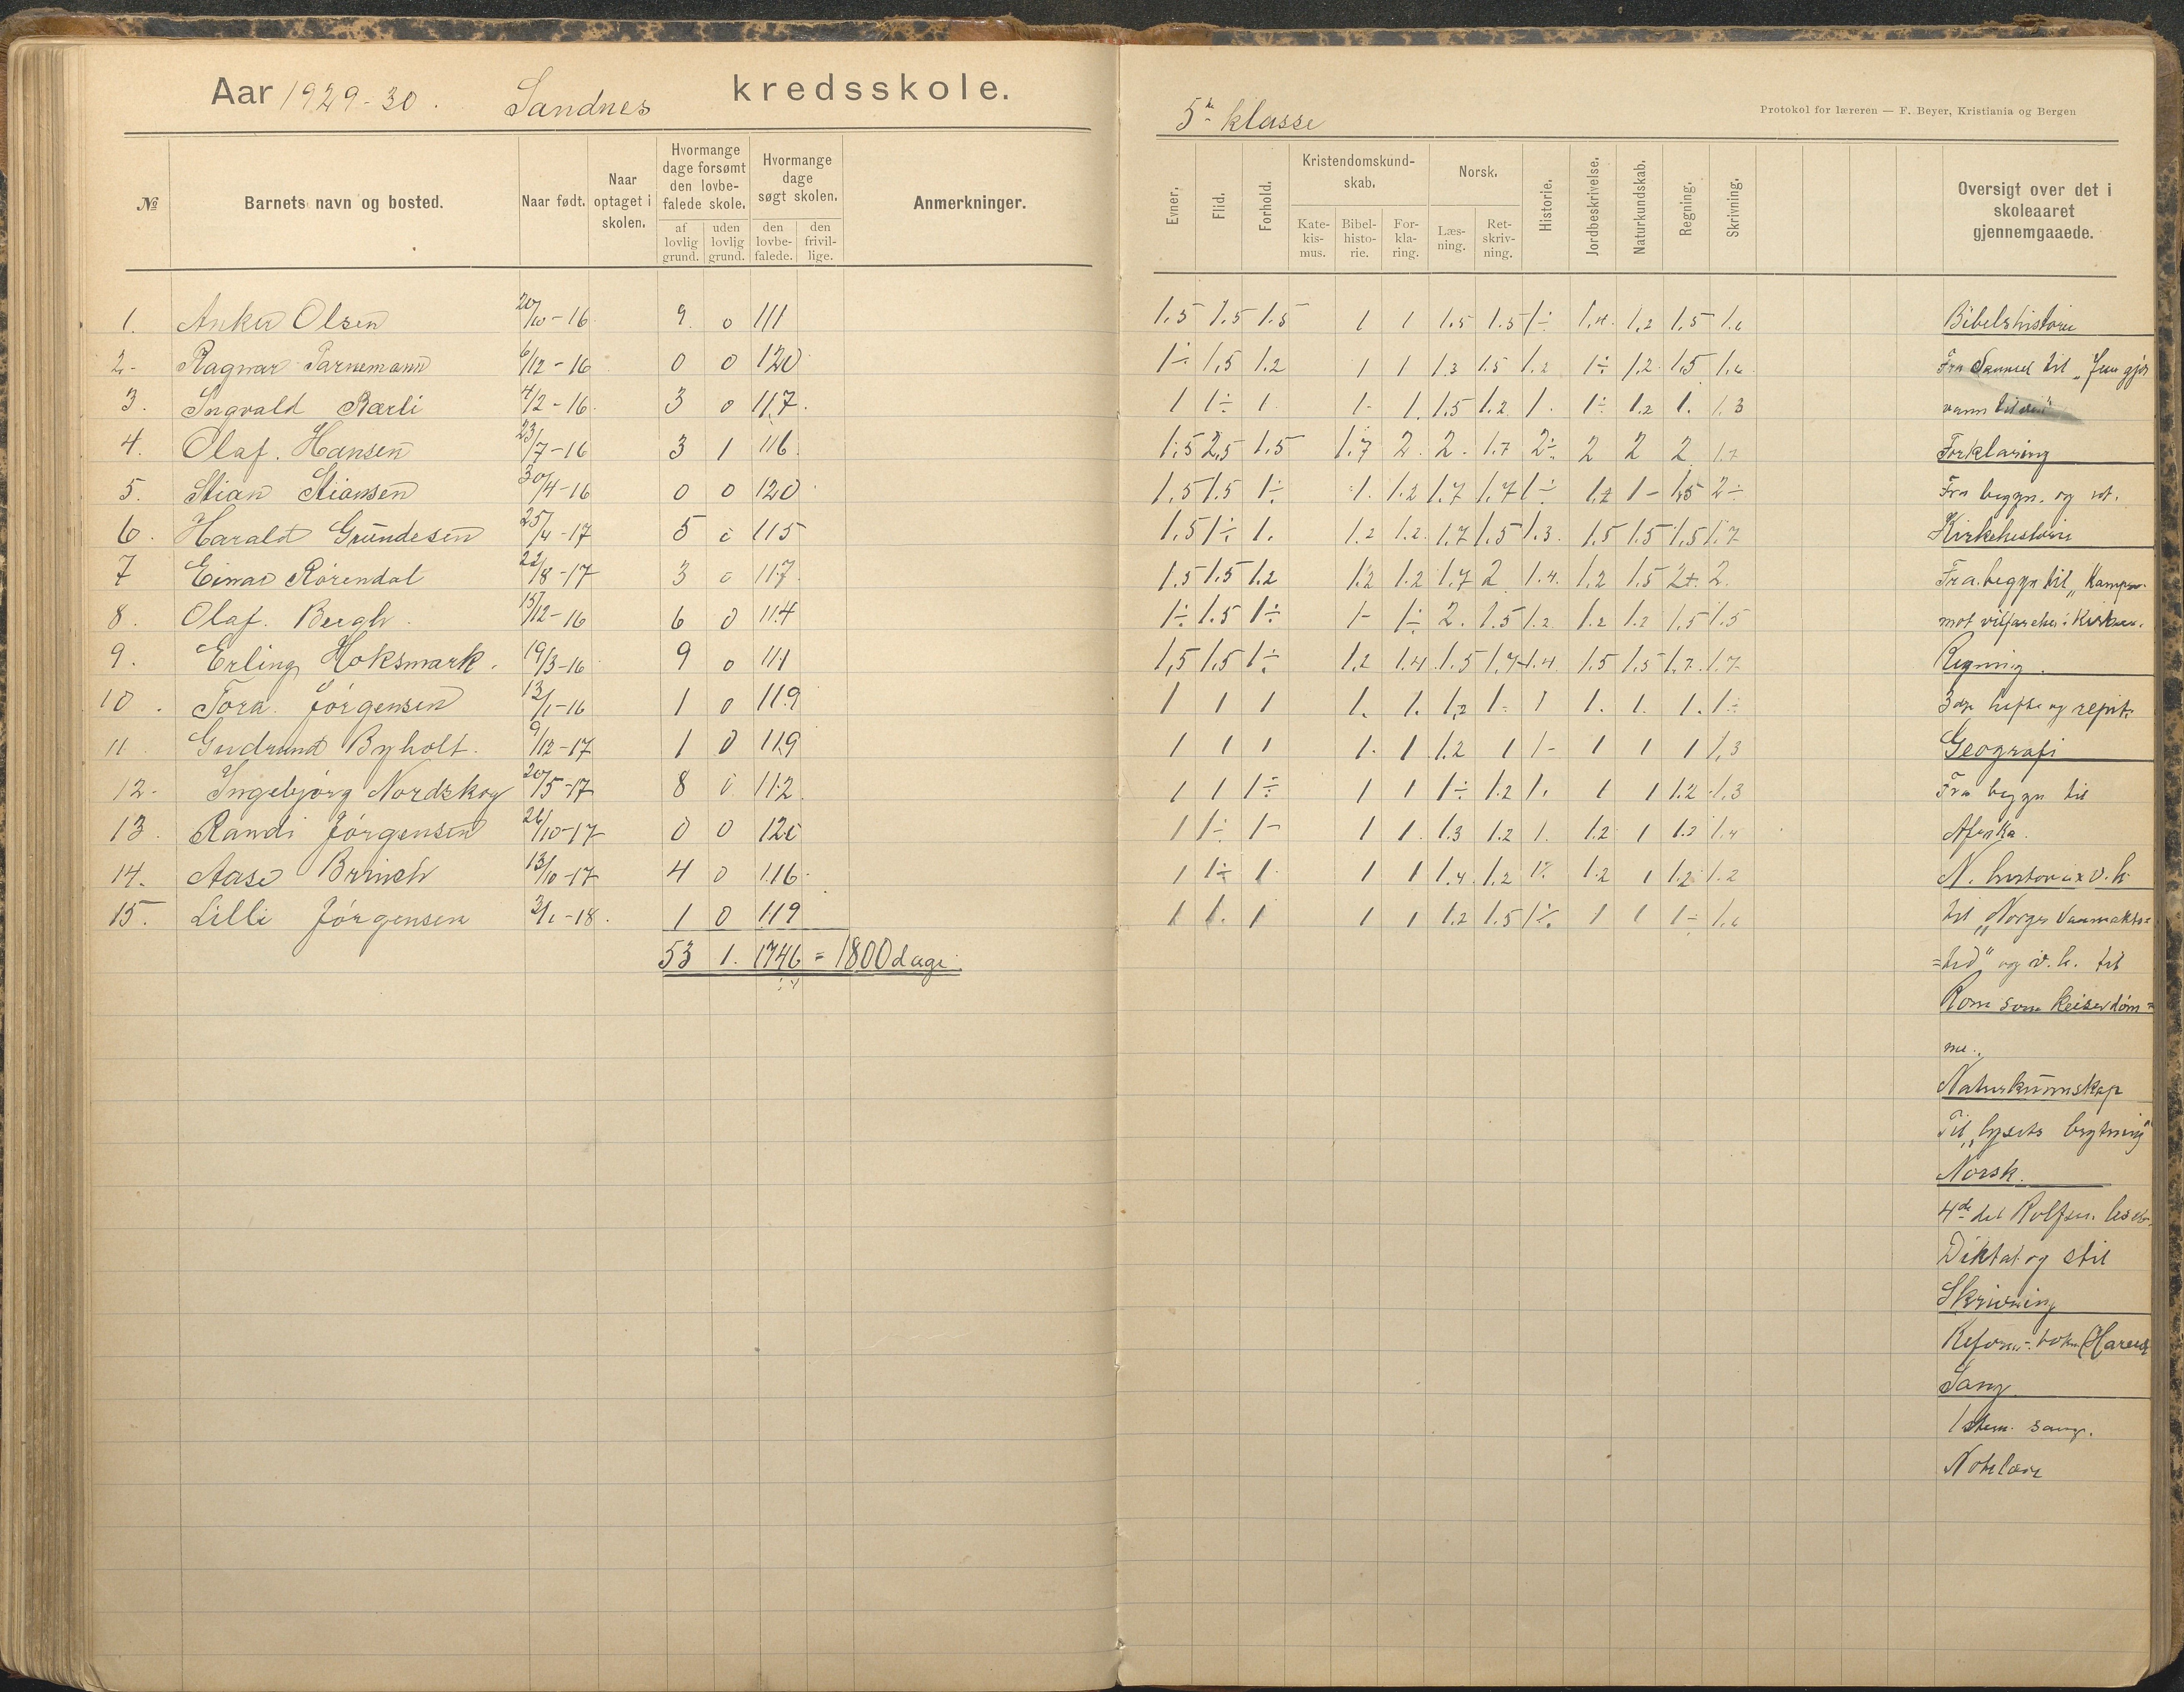 Aar 1929-30. Sandnes kredsskole.
№
Barnets navn og bosted.
Naar født.
Naar optaget i skolen.
Hvormange dage forsømt den lovbefalede skole.
af lovlig grund.
uden lovlig grund.
Hvormange dage søgt skolen.
den lovbefalede.
den frivillige.
Anmerkninger.
1. Anker Olsen 20/10-16 9 0 111
2. Ragnar Tarnemann 6/12-16 0 0 120
3. Ingvald Rærli 4/2-16 3 0 117
4. Olaf Hansen 23/7-16 3 1 116
5. Stian Stiansen 30/4-16 0 0 120
6. Harald Grundesen 25/4-17 5 0 115
7 Einar Rörendal 22/8-17 3 0 117
8. Olaf Bergh 15/12-16 6 0 114
9. Erling Hoksmark. 19/3-16 9 0 111
10. Tora Jörgensen 13/1-16 1 0 119
11 Gudrund Byholt. 9/12-17 1 0 119
12. Ingebjörg Nordskog 20/5-17 8 0 112
13. Randi Jörgensen 26/10-17 0 0 120
14. Aase Brinch 13/10-17 4 0 116
15. Lilli Jörgensen 3/1-18. 1 0 119
53 1. 1746 = 1800 dage.
5te klasse
Protokol for læreren — F. Beyer, Kristiania og Bergen
Evner.
Flid.
Forhold.
Kristendomskundskab.
Katekismus.
Bibelhistorie.
Forklaring.
Norsk.
Læsning.
Retskrivning.
Historie.
Jordbeskrivelse.
Naturkundskab.
Regning.
Skrivning.
Oversigt over det i skoleaaret gjennemgaaede.
1.5 1.5 1.5 1 1 1.5 1.5 1÷ 1.4 1.2 1.5 1.6
1÷ 1,5 1.2 1 1 1.3 1.5 1.2 1÷ 1.2 1,5 1.6
1 1÷ 1 1- 1. 1.5 1.2 1. 1÷ 1.2 1. 1.3
1.5 2,5 1.5 1.7 2. 2. 1.7 2÷ 2 2 2 1.7
1,5 1.5 1÷ 1. 1.2 1.7 1.7 1÷ 1.2 1- 1,5 2÷
1.5 1÷ 1. 1.2 1.2 1.7 1.5 1.3 1.5 1.5 1,5 1.7
1.5 1.5 1.2 1.2 1.2 1.7 2 1.4. 1.2 1.5 2+ 2.
1÷ 1.5 1÷ 1- 1÷ 2. 1.5 1.2 1.2 1.2 1.5 1.5
1,5 1.5 1÷ 1.2 1.4 1.5 1.7 1.4 1.5 1.5 1.7 1.7
1 1 1 1. 1. 1,2 1- 1 1. 1. 1. 1÷
1 1 1 1. 1 1.2 1 1- 1 1 1 1,3
1 1 1÷ 1 1 1÷ 1.2 1. 1 1 1.2 1.3
1 1÷ 1- 1 1. 1.3 1.2 1. 1.2 1 1.2 1.4
1 1÷ 1 1 1 1.4 1.2 1÷ 1.2 1 1.2 1.2
1 1. 1 1 1 1.2 1.5 1÷ 1 1 1÷ 1.6
Bibelshistorie
Fra Samuel til
vann til vin"
Forklaring
Fra begyn. og ut.
Kirkehistorie
Fra begyn til „Kampen
mot vilfarelser i Kirken.
Regning.
3dje hefte og repit.
Geografi
Fra begyn til
Afrika.
N. historie x v. h
til „Norges Vanmakts=
=tid" og v. h. til
Rom som keiserdöm=
me.
Naturkunnskap
Til „lysets brytning"
Norsk.
4de del Rolfsen. leseb.
Diktat og stil
Skrivning
Reform-bokn
Sang.
1 stem. sang.
Notelære